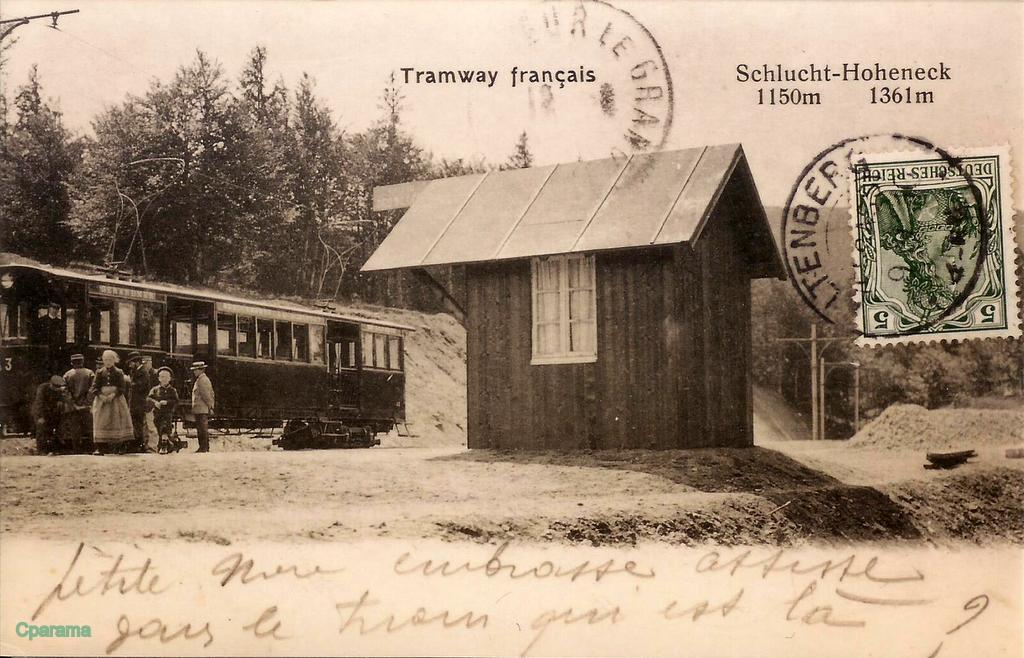 Tramway français
Schlucht-Hoheneck
1150m 1361m
UR LE GRAN
18
LTENBERG
DEUTSCHES-REICH
5 5
3
petite embrasse
dans le train qui est là
Cparama